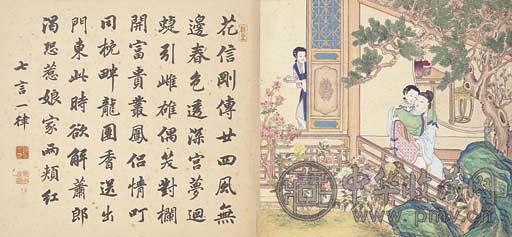 花信剛傳廿四風無
邊春色透深宮夢迴
蜨引雌雄偶笑對欄
開富貴叢鳳侶情叮
同枕畔龍團香送出
門東此時欲解蕭郎
渴恐惹娘家兩頰紅
七言一律
中华收藏网